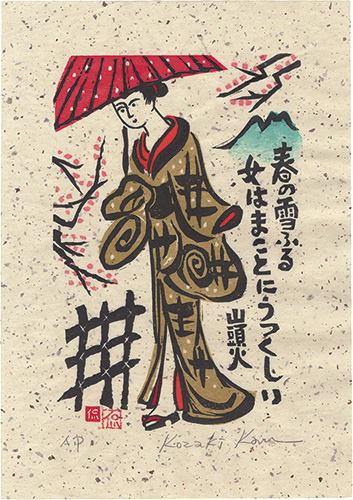 春の雪ふる
女はまことにうつくしい
山頭火
A.P
Kozaki Kan